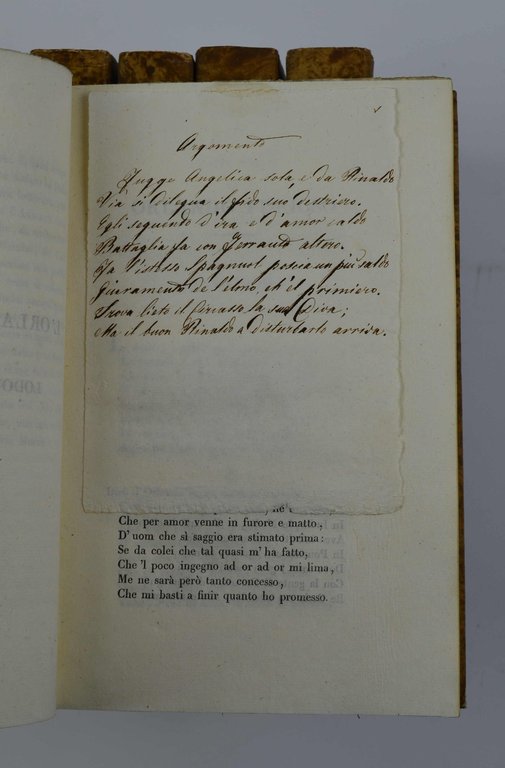 Argomento
Fugge Angelica sola, e da Rinaldo
Via si dilegua il fido suo destriero.
Egli seguendo d'ira e d'amor caldo
Battaglia fa con Ferrauto altero.
Fa l'istesso Spagnuol poscia un più saldo
Giuramento de l'elmo, ch'el primiero.
Trova lieto il Circasso la sua Diva;
Ma il buon Rinaldo a disturbarlo arriva.
Che per amor venne in furore e matto,
D'uom che sì saggio era stimato prima:
Se da colei che tal quasi m'ha fatto,
Che 'l poco ingegno ad or ad or mi lima,
Me ne sarà però tanto concesso,
Che mi basti a finir quanto ho promesso.